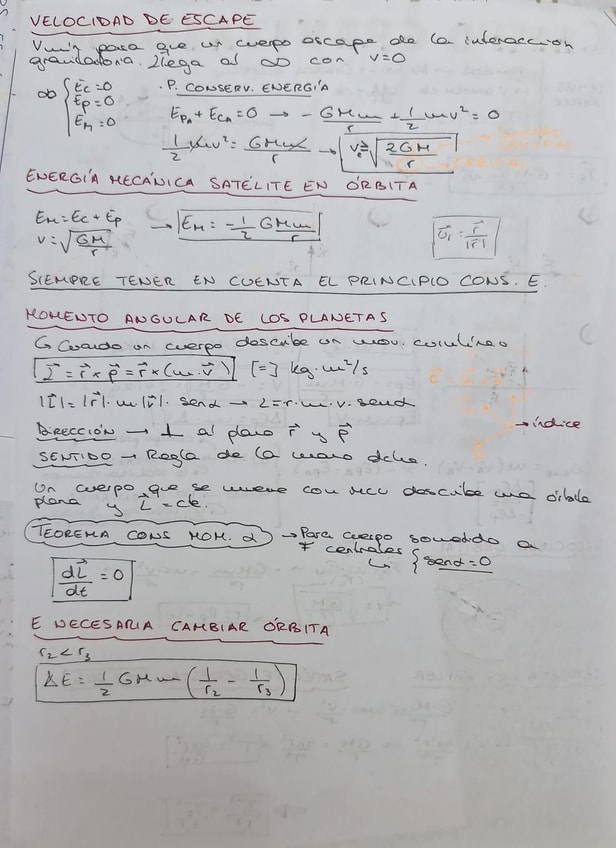 VELOCIDAD DE ESCAPE
Vmín para que un cuerpo escape de la interacción
gravitatoria. Llega al ∞ con v=0
∞ { Ec=0 Ep=0 EM=0
· P. CONSERV. ENERGÍA
EPA + ECA = 0 → - GMm/r + 1/2 mv² = 0
1/2 mv² = GMm/r → ve = √(2GM/r)
ENERGÍA MECÁNICA SATÉLITE EN ÓRBITA
EM = Ec + Ep
v = √(GM/r) → EM = -1/2 GMm/r
u⃗r = r⃗/|r⃗|
SIEMPRE TENER EN CUENTA EL PRINCIPIO CONS. E.
MOMENTO ANGULAR DE LOS PLANETAS
↳ Cuando un cuerpo describe un mov. curvilíneo
L⃗ = r⃗ × p⃗ = r⃗ × (m · v⃗) [=] kg · m²/s
|L⃗| = |r⃗| · m |v⃗| · senα → L = r · m · v · senα
DIRECCIÓN → ⊥ al plano r⃗ y p⃗
→ índice
SENTIDO → Regla de la mano dcha.
Un cuerpo que se mueve con MCU describe una órbita
plana y L⃗ = cte.
TEOREMA CONS MOM. α → Para cuerpo sometido a
F centrales
↳ { senα = 0
dL⃗/dt = 0
E NECESARIA CAMBIAR ÓRBITA
r₂ < r₃
ΔE = 1/2 GMm (1/r₂ - 1/r₃)